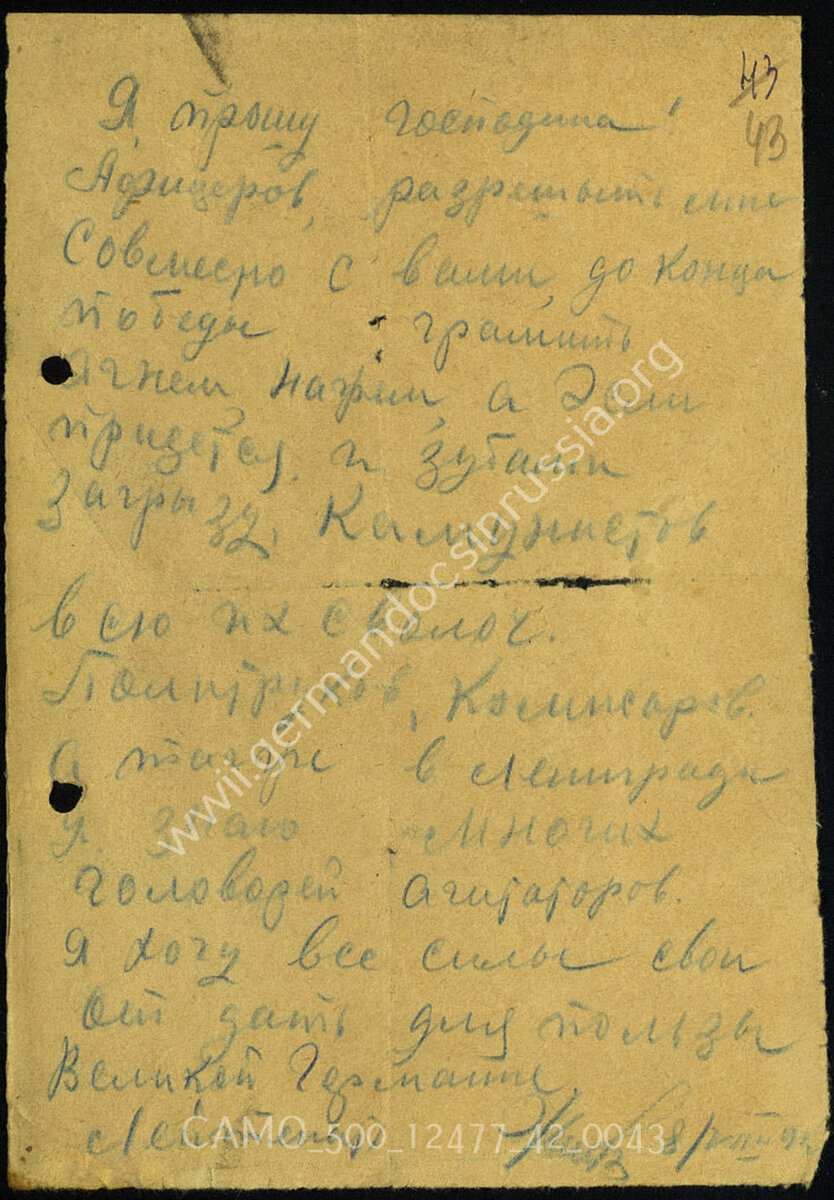 43
43
Я, прошу господина!
Афицеров, разрешыть мне
Совмесно с вами, до конца
победы грамить
Агнем, нажем, а Эсли
придется, и зубами
Загрызу, Камунистов
всю их сволоч.
Политруков, Комисаров.
А также в Ленингради
я знаю многих
головарей агитаторов.
Я хочу все силы свои
от дать для пользы
Великой Германие.
Лейтенант
www.germandocsinrussia.org
CAMO_500_12477_42_0043